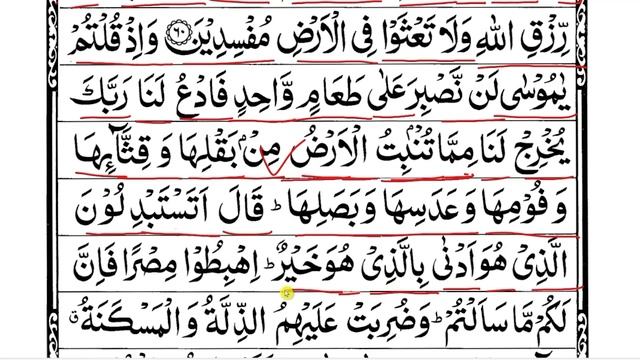 رِّزْقِ اللّٰهِ وَلَا تَعْثَوْا فِی الْاَرْضِ مُفْسِدِیْنَ ﴿۶۰﴾ وَ اِذْ قُلْتُمْ
یٰمُوْسٰی لَنْ نَّصْبِرَ عَلٰی طَعَامٍ وَّاحِدٍ فَادْعُ لَنَا رَبَّكَ
یُخْرِجْ لَنَا مِمَّا تُنْۢبِتُ الْاَرْضُ مِنْۢ بَقْلِهَا وَ قِثَّآئِهَا
وَ فُوْمِهَا وَ عَدَسِهَا وَ بَصَلِهَا ؕ قَالَ اَتَسْتَبْدِلُوْنَ
الَّذِیْ هُوَ اَدْنٰی بِالَّذِیْ هُوَ خَیْرٌ ؕ اِهْبِطُوْا مِصْرًا فَاِنَّ
لَكُمْ مَّا سَاَلْتُمْ ؕ وَ ضُرِبَتْ عَلَیْهِمُ الذِّلَّةُ وَ الْمَسْكَنَةُ ۗ